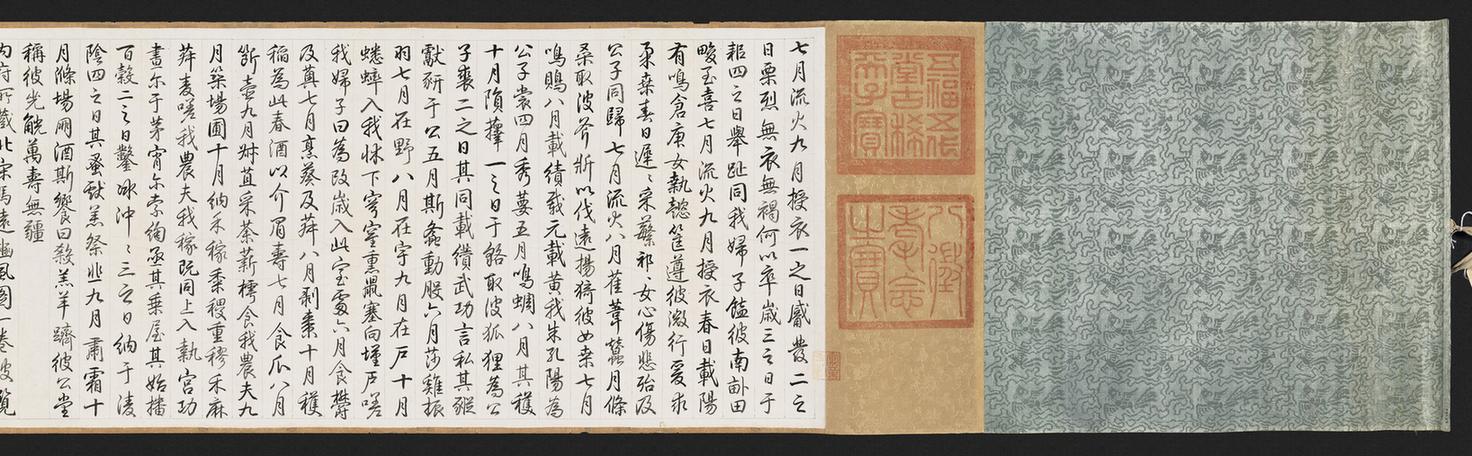 五福五代
堂古稀
天子寶
八徵
耄念
之寶
七月流火九月授衣一之日觱發二之
日栗烈無衣無褐何以卒歲三之日于
耜四之日舉趾同我婦子饁彼南畝田
畯至喜七月流火九月授衣春日載陽
有鳴倉庚女執懿筐遵彼微行爰求
柔桑春日遲〻采蘩祁〻女心傷悲殆及
公子同歸七月流火八月萑葦蠶月條
桑取彼斧斨以伐遠揚猗彼女桑七月
鳴鵙八月載績載元載黃我朱孔陽為
公子裳四月秀葽五月鳴蜩八月其穫
十月隕蘀一之日于貉取彼狐狸為公
子裘二之日其同載纘武功言私其豵
獻豜于公五月斯螽動股六月莎雞振
羽七月在野八月在宇九月在戶十月
蟋蟀入我牀下穹窒熏鼠塞向墐戶嗟
我婦子曰為改歲入此室處六月食鬱
及薁七月烹葵及菽八月剝棗十月穫
稻為此春酒以介眉壽七月食瓜八月
斷壺九月叔苴采荼薪樗食我農夫九
月築場圃十月納禾稼黍稷重穋禾麻
菽麥嗟我農夫我稼既同上入執宮功
晝尔于茅宵尔索綯亟其乘屋其始播
百穀二之日鑿冰沖〻三之日納于凌
陰四之日其蚤獻羔祭韭九月肅霜十
月滌場朋酒斯饗曰殺羔羊躋彼公堂
稱彼兕觥萬壽無疆
內府所藏北宋馬遠豳風圖一卷披覽